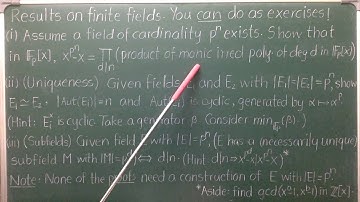 Results on finite fields. You can do as exercises!
(i) Assume a field of cardinality pⁿ exists. Show that
in 𝔽ₚ[x], x^{pⁿ}-x = ∏_{d|n} (product of monic irred. poly. of deg d in 𝔽ₚ[x])
(ii) (Uniqueness) Given fields E₁ and E₂ with |E₁|=|E₂|=pⁿ, show
E₁ ≃ E₂. |Aut(E₁)|=n and Aut(E₁) is cyclic, generated by α↦αᵖ
(Hint: E₁ˣ is cyclic. Take a generator β. Consider min_{𝔽ₚ}(β).)
(iii) (Subfields) Given field E with |E|=pⁿ. (E has a (necessarily unique)
subfield M with |M|=pᵈ) ⇔ d|n. (Hint: d|n ⇒ x^{pᵈ}-x | x^{pⁿ}-x)*
Note: None of the proofs need a construction of E with |E|=pⁿ.
*Aside: find gcd(xᵃ-1, xᵇ-1) in ℤ[x].